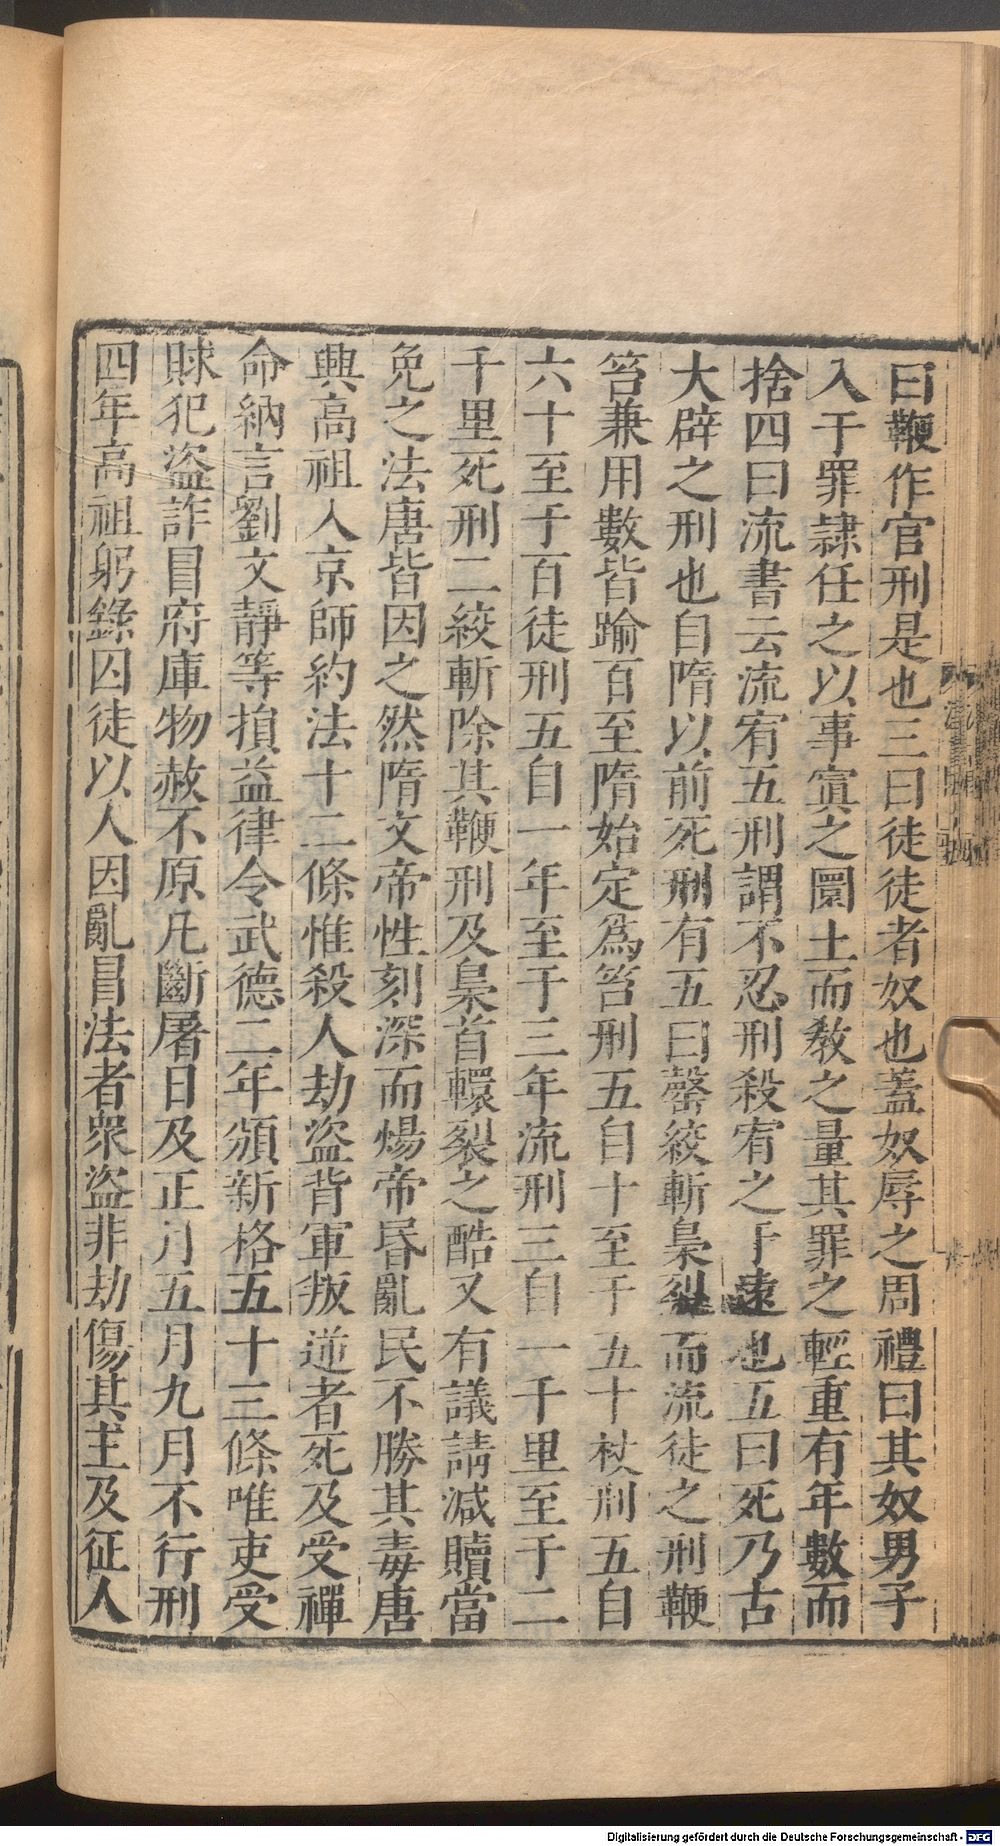 曰鞭作官刑是也三曰徒徒者奴也蓋奴辱之周禮曰其奴男子
入于罪隷任之以事寘之圜土而敎之量其罪之輕重有年數而
捨四曰流書云流宥五刑謂不忍刑殺宥之于遠也五曰死乃古
大辟之刑也自隋以前死刑有五曰罄絞斬梟裂而流徒之刑鞭
笞兼用數皆踰百至隋始定爲笞刑五自十至于五十杖刑五自
六十至于百徒刑五自一年至于三年流刑三自一千里至于二
千里死刑二絞斬除其鞭刑及梟首轘裂之酷又有議請减贖當
免之法唐皆因之然隋文帝性刻深而煬帝昬亂民不勝其毒唐
興高祖入京師約法十二條惟殺人劫盜背軍叛逆者死及受禪
命納言劉文靜等損益律令武德二年頒新格五十三條唯吏受
賕犯盜詐冒府庫物赦不原凡斷屠日及正月五月九月不行刑
四年高祖躬錄囚徒以人因亂冒法者衆盜非劫傷其主及征人
Digitalisierung gefördert durch die Deutsche Forschungsgemeinschaft - DFG